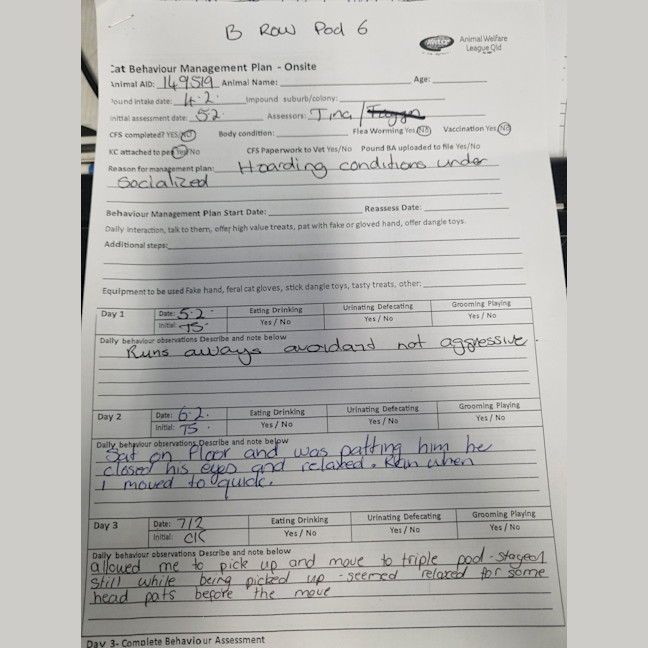 B Row Pod 6
Animal Welfare
League Qld
Cat Behaviour Management Plan - Onsite
Animal AID: 149519 Animal Name: Age:
Pound Intake date: 4.2. Impound suburb/colony:
Initial assessment date: 5.2. Assessors: Tina /
CFS completed? YES/NO Body condition: Flea Worming Yes/No Vaccination Yes/No
KC attached to pen Yes/No CFS Paperwork to Vet Yes/No Pound BA uploaded to file Yes/No
Reason for management plan: Hoarding conditions under
Socialized
Behaviour Management Plan Start Date: Reassess Date:
Daily Interaction, talk to them, offer high value treats, pat with fake or gloved hand, offer dangle toys.
Additional steps:
Equipment to be used Fake hand, feral cat gloves, stick dangle toys, tasty treats, other:
Day 1 Date: 5.2. Eating Drinking Urinating Defecating Grooming Playing
Initial: TS. Yes / No Yes / No Yes / No
Daily behaviour observations Describe and note below
Runs aways avoidard not aggressive.
Day 2 Date: 6.2. Eating Drinking Urinating Defecating Grooming Playing
Initial: TS. Yes / No Yes / No Yes / No
Daily behaviour observations Describe and note below
Sat on floor and was patting him he
closed his eyes and relaxed. Ran when
I moved to quick.
Day 3 Date: 7/2 Eating Drinking Urinating Defecating Grooming Playing
Initial: CK Yes / No Yes / No Yes / No
Daily behaviour observations Describe and note below
allowed me to pick up and move to triple pod - stayed
still while being picked up - seemed relaxed for some
head pats before the move
Day 3- Complete Behaviour Assessment